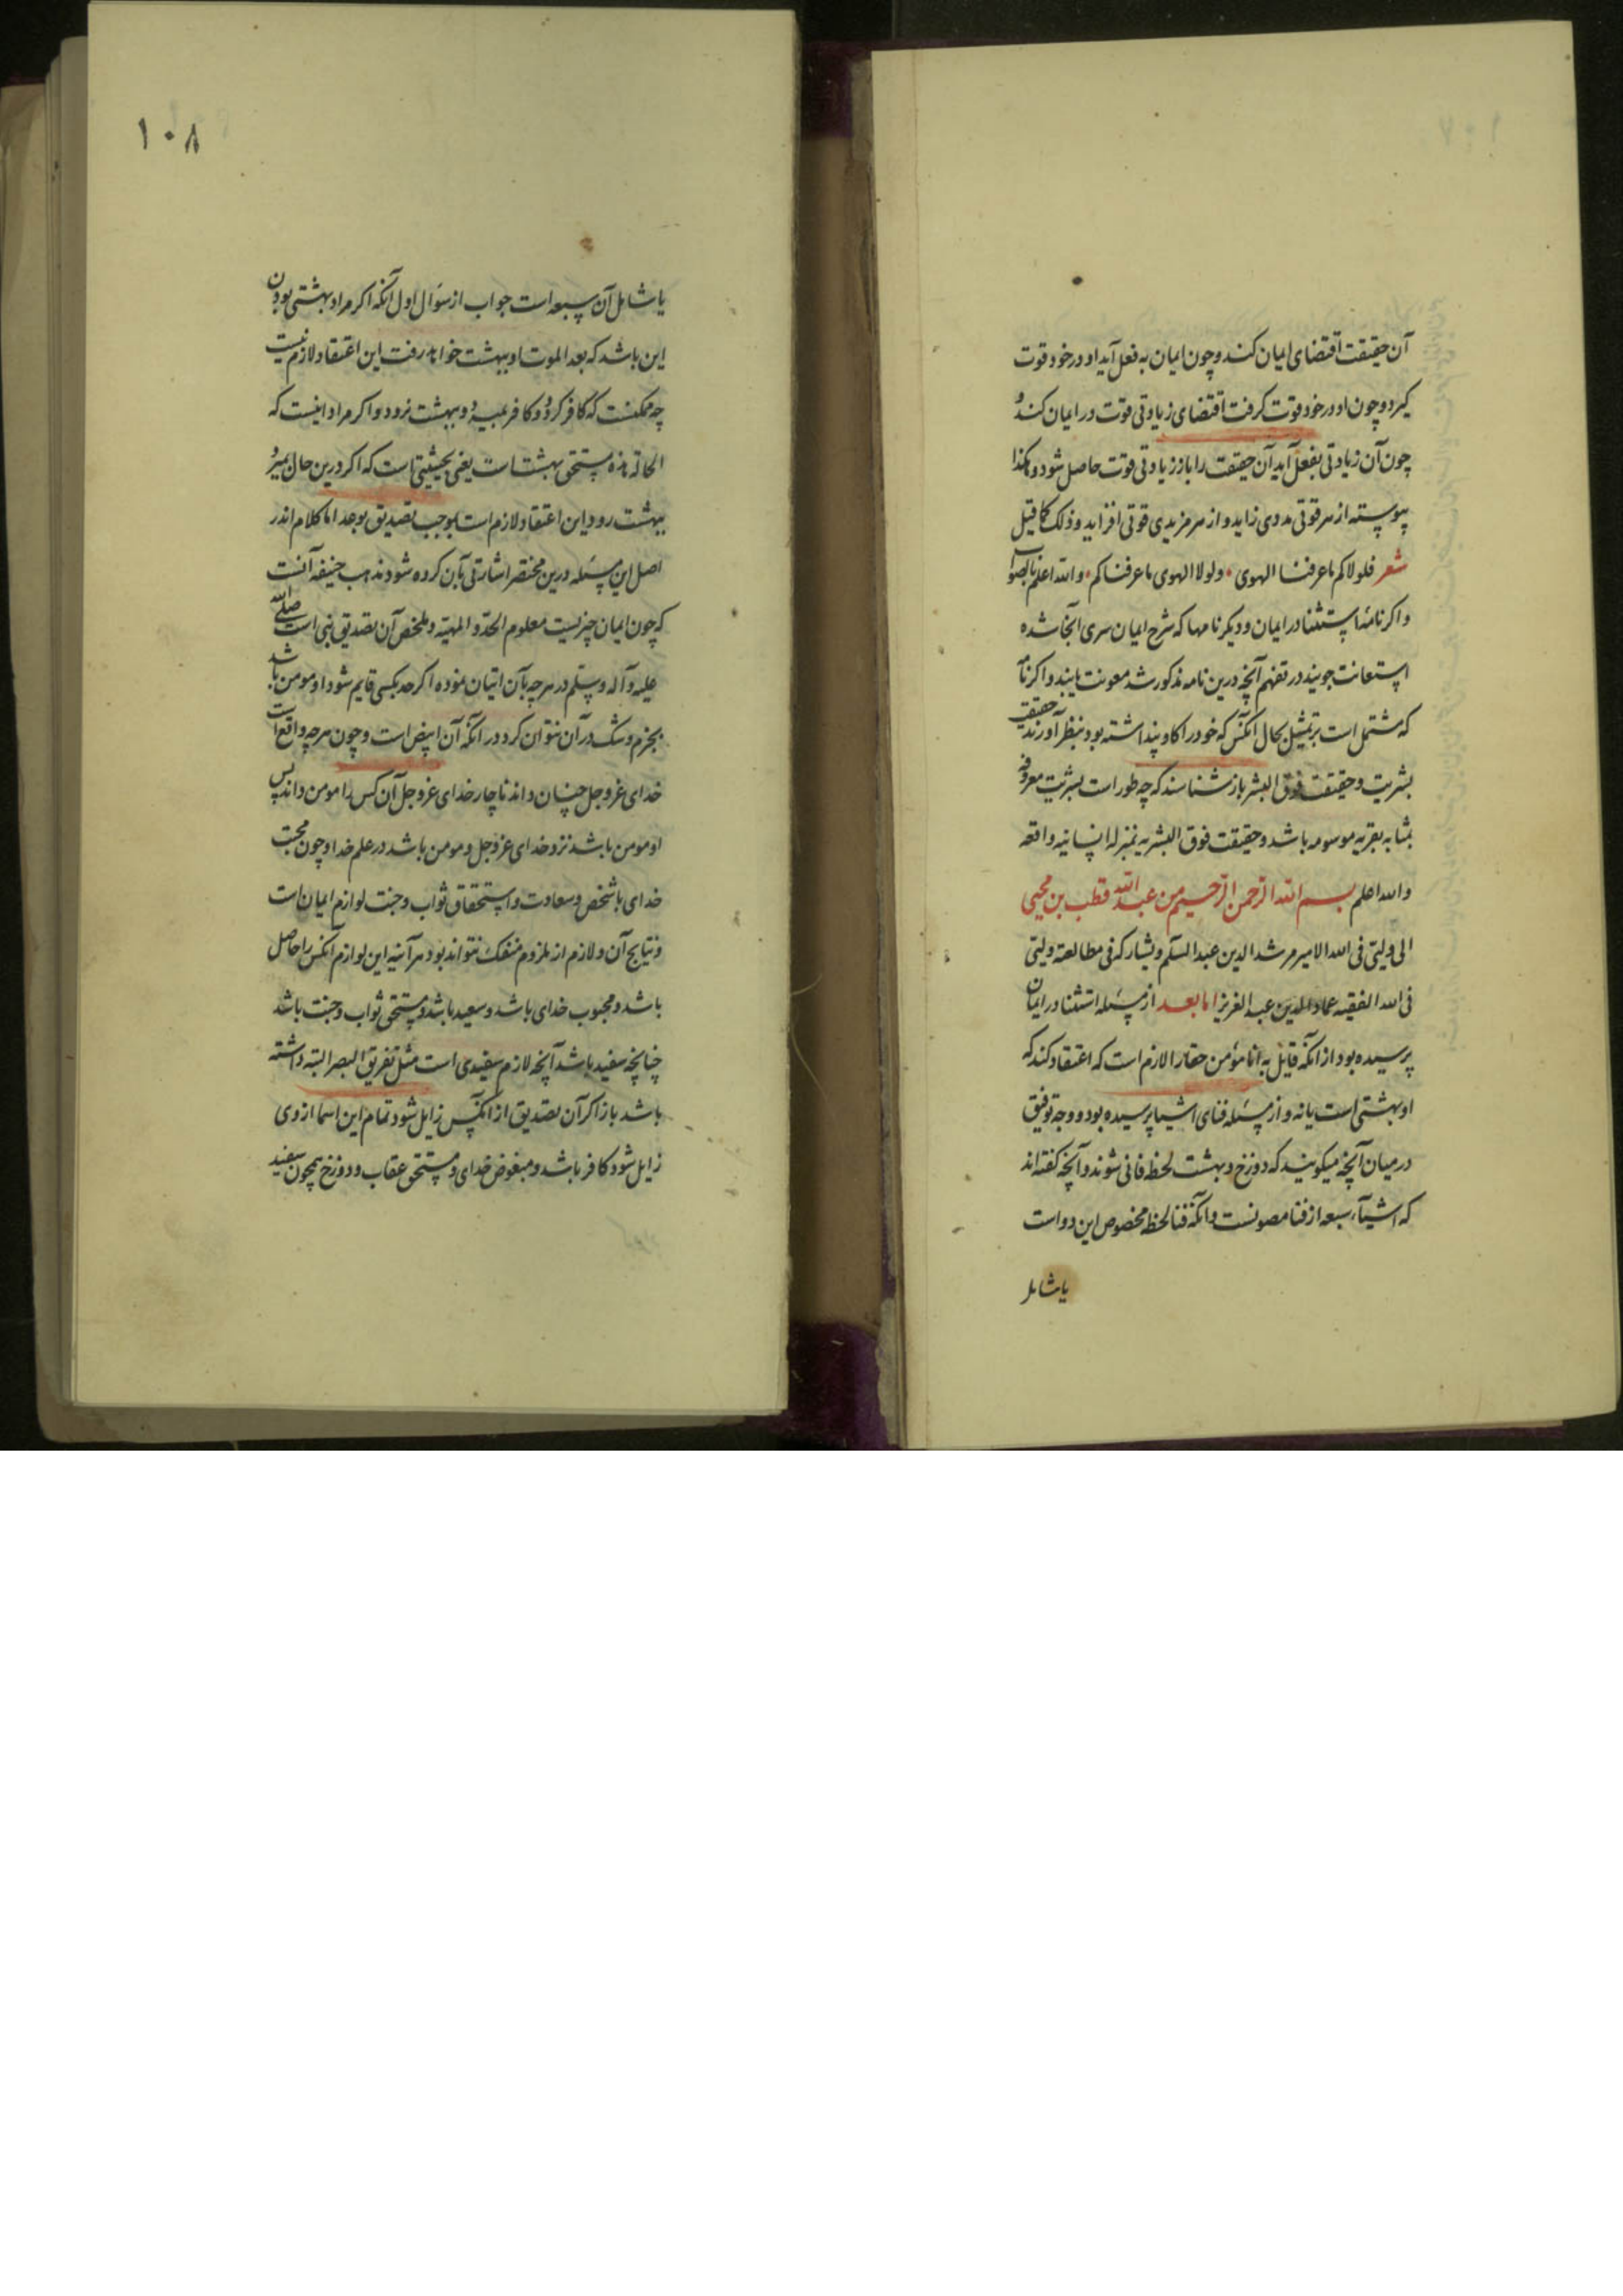 آن حقیقت اقتضای ایمان کند و چون ایمان به فعل آید او در خود قوت
کیرد و چون او در خود قوت کرفت اقتضای زیادتی قوت در ایمان کند و
چون آن زیادتی بفعل آید آن حقیقت را باز زیادتی قوت حاصل شود و هکذا
پیوسته از هر قوتی مددی زاید و از هر مزیدی قوتی افزاید و ذلک کما قیل
شعر فلولاکم ما عرفنا الهوی ٠ ولولا الهوی ما عرفناکم ٠ والله اعلم بالصواب
و اکر نامهٔ استثنا در ایمان و دیکر نامها که شرح ایمان سری آنجا شده
استعانت جویند در تفهم آنچه درین نامه مذکور شد معونت یابند و اکر نامه
که مشتمل است بر تمثیل بحال آنکس که خود را کاو پنداشته بود بنظر آورند حقیقت
بشریت و حقیقت فوق البشر باز شناسند که چه طور است بشریت معروفه
بمثابه بقریه موسومه باشد و حقیقت فوق البشریه بمنزله انسانیه واقعه
والله اعلم بسم الله الرحمن الرحیم من عبدالله قطب بن محیی
الی ولیتی فی الله الامیر مرشد الدین عبد السلم و یشارکه فی مطالعته ولیتی
فی الله الفقیه عماد الدین عبد العزیز اما بعد از مسئله استثنا در ایمان
پرسیده بود از آنکه قایل به انا مؤمن حقا را لازم است که اعتقاد کند که
او بهشتی است یا نه و از مسئله فنای اشیا پرسیده بود و وجه توفیق
در میان آنچه میکویند که دوزخ و بهشت لحظه فانی شوند و آنچه کفته اند
که اشیآء سبعه از فنا مصونست و آنکه فنا لحظه مخصوص این دو است
یا شامل
١٠٨
یا شامل آن سبعه است جواب از سؤال اول آنکه اکر مراد بهشتی بودن
این باشد که بعد الموت او ببهشت خواهد رفت این اعتقاد لازم نیست
چه ممکنست که کافر کردد و کافر بمیرد و ببهشت نرود و اکر مراد اینست که
الحالة هذه مستحق بهشت است یعنی بحیثیتی است که اکر درین حال بمیرد
ببهشت رود این اعتقاد لازم است بموجب تصدیق بوعد اما کلام اندر
اصل این مسئله درین مختصر اشارتی بآن کرده شود مذهب حنیفه آنست
که چون ایمان چیزیست معلوم الحد و المهیه و ملخص آن تصدیق نبی است صلی الله
علیه و آله و سلم در هر چه بآن اتیان نموده اکر حد بکسی قایم شود او مومن باشد
بجزم و شک در آن نتوان کرد در آنکه آن ابیض است و چون هر چه واقع است
خدای عز و جل چنان داند ناچار خدای عز و جل آن کس را مومن داند پس
او مومن باشد نزد خدای عز و جل و مومن باشد در علم خدا و چون محبت
خدای با شخص و سعادت و استحقاق ثواب و جنت لوازم ایمان است
و نتایج آن و لازم از ملزوم منفک نتواند بود هر آینه این لوازم آنکس را حاصل
باشد و محبوب خدای باشد و سعید باشد و مستحق ثواب و جنت باشد
چنانچه سفید باشد آنچه لازم سفیدی است مثل تفریق البصر البته داشته
باشد باز اکر آن تصدیق از آنکس زایل شود تمام این اسما از وی
زایل شود کافر باشد و مبغوض خدای و مستحق عقاب و دوزخ همچون سفید